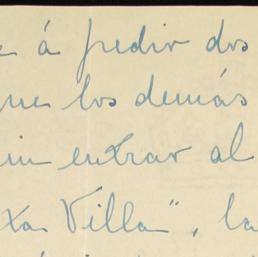 e á pedir dos
que los demás
in entrar al
xa Villa", la